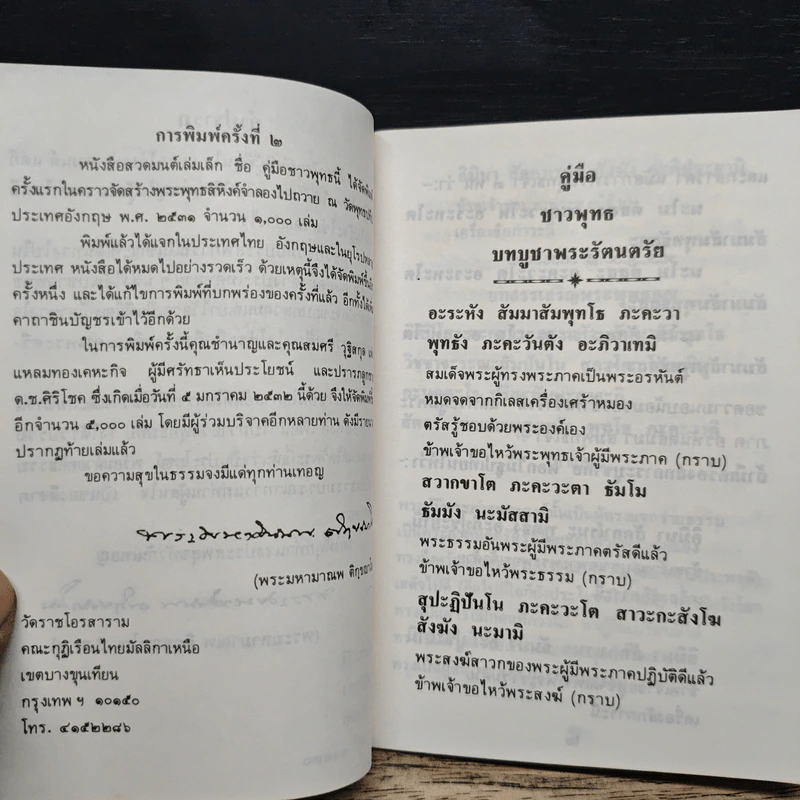 การพิมพ์ครั้งที่ ๒
หนังสือสวดมนต์เล่มเล็ก ชื่อ คู่มือชาวพุทธนี้ ได้จัดพิมพ์
ครั้งแรกในคราวจัดสร้างพระพุทธสิหิงค์จำลองไปถวาย ณ
ประเทศอังกฤษ พ.ศ. ๒๕๓๑ จำนวน ๑,๐๐๐ เล่ม
พิมพ์แล้วได้แจกในประเทศไทย อังกฤษและในยุโรป
ประเทศ หนังสือได้หมดไปอย่างรวดเร็ว ด้วยเหตุนี้จึงได้จัดพิมพ์
ครั้งหนึ่ง และได้แก้ไขการพิมพ์ที่บกพร่องของครั้งที่แล้ว อีกทั้งได้
คาถาชินบัญชรเข้าไว้อีกด้วย
ในการพิมพ์ครั้งนี้คุณชำนาญและคุณสมศรี วุฐิสกุล
แหลมทองเคหะกิจ ผู้มีศรัทธาเห็นประโยชน์ และปรารภ
ด.ช.ศิริโชค ซึ่งเกิดเมื่อวันที่ ๕ มกราคม ๒๕๓๒ นี้ด้วย จึงให้จัดพิมพ์
อีกจำนวน ๕,๐๐๐ เล่ม โดยมีผู้ร่วมบริจาคอีกหลายท่าน ดังมี
ปรากฏท้ายเล่มแล้ว
ขอความสุขในธรรมจงมีแด่ทุกท่านเทอญ
(พระมหามาณพ
วัดราชโอรสาราม
คณะกุฏิเรือนไทยมัลลิกาเหนือ
เขตบางขุนเทียน
กรุงเทพ ฯ ๑๐๑๕๐
โทร. ๔๑๕๒๒๘๖
คู่มือ
ชาวพุทธ
บทบูชาพระรัตนตรัย
อะระหัง สัมมาสัมพุทโธ ภะคะวา
พุทธัง ภะคะวันตัง อะภิวาเทมิ
สมเด็จพระผู้ทรงพระภาคเป็นพระอรหันต์
หมดจดจากกิเลสเครื่องเศร้าหมอง
ตรัสรู้ชอบด้วยพระองค์เอง
ข้าพเจ้าขอไหว้พระพุทธเจ้าผู้มีพระภาค (กราบ)
สวากขาโต ภะคะวะตา ธัมโม
ธัมมัง นะมัสสามิ
พระธรรมอันพระผู้มีพระภาคตรัสดีแล้ว
ข้าพเจ้าขอไหว้พระธรรม (กราบ)
สุปะฏิปันโน ภะคะวะโต สาวะกะสังโฆ
สังฆัง นะมามิ
พระสงฆ์สาวกของพระผู้มีพระภาคปฏิบัติดีแล้ว
ข้าพเจ้าขอไหว้พระสงฆ์ (กราบ)